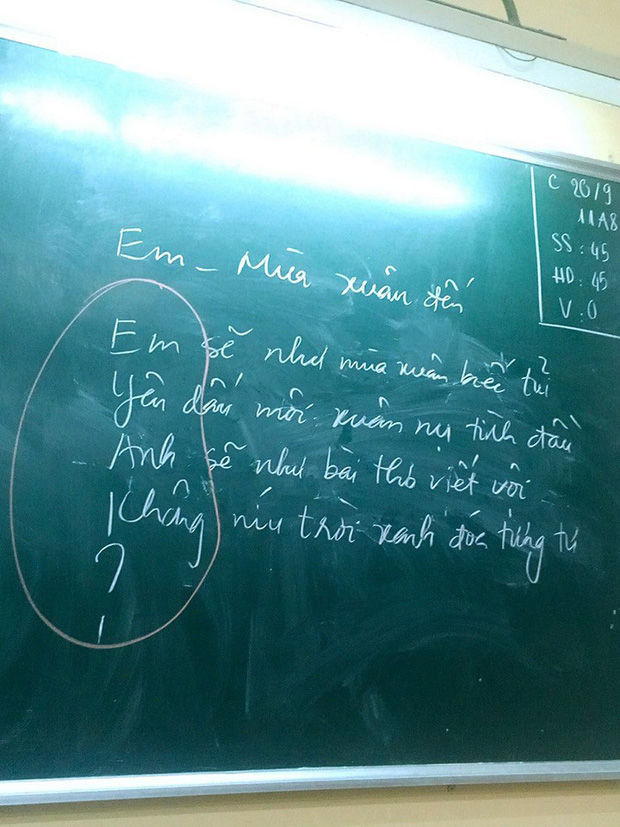 Em - Mùa xuân đến
Em sẽ như mùa xuân biếc tử
Yên dấu môi xuân nụ tình đầu
Anh sẽ như bài thơ viết vội
Không níu trời xanh đóa tưởng tư
?
C 20/9
11A8
SS: 45
HD: 45
V: 0